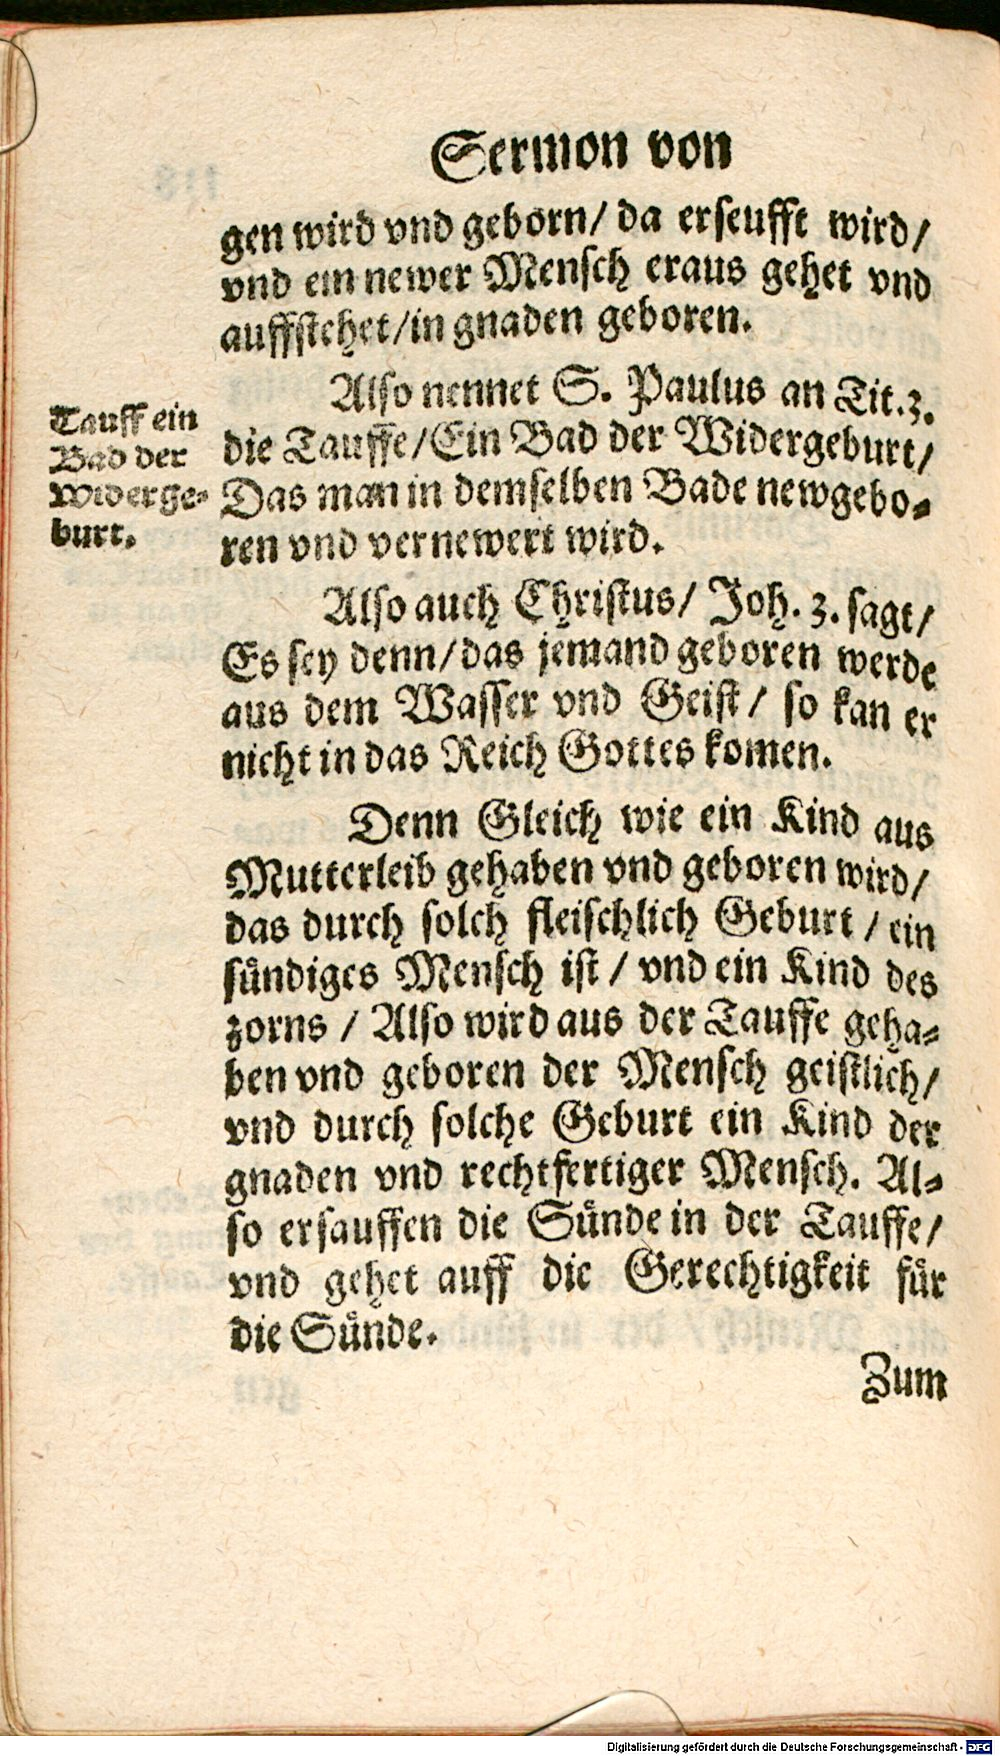 Sermon von
gen wird vnd geborn/ da erseufft wird/
vnd ein newer Mensch eraus gehet vnd
auffstehet/in gnaden geboren.
Also nennet S. Paulus an Tit.3.
die Tauffe/Ein Bad der Widergeburt/
Das man in demselben Bade newgebo-
ren vnd vernewert wird.
Tauff ein
Bad der
Widerge-
burt.
Also auch Christus/ Joh. 3. sagt/
Es sey denn/das jemand geboren werde
aus dem Wasser vnd Geist/ so kan er
nicht in das Reich Gottes komen.
Denn Gleich wie ein Kind aus
Mutterleib gehaben vnd geboren wird/
das durch solch fleischlich Geburt / ein
sündiges Mensch ist / vnd ein Kind des
zorns / Also wird aus der Tauffe geha-
ben vnd geboren der Mensch geistlich/
vnd durch solche Geburt ein Kind der
gnaden vnd rechtfertiger Mensch. Al-
so ersauffen die Sünde in der Tauffe/
vnd gehet auff die Gerechtigkeit für
die Sünde.
Zum
Digitalisierung gefördert durch die Deutsche Forschungsgemeinschaft - DFG